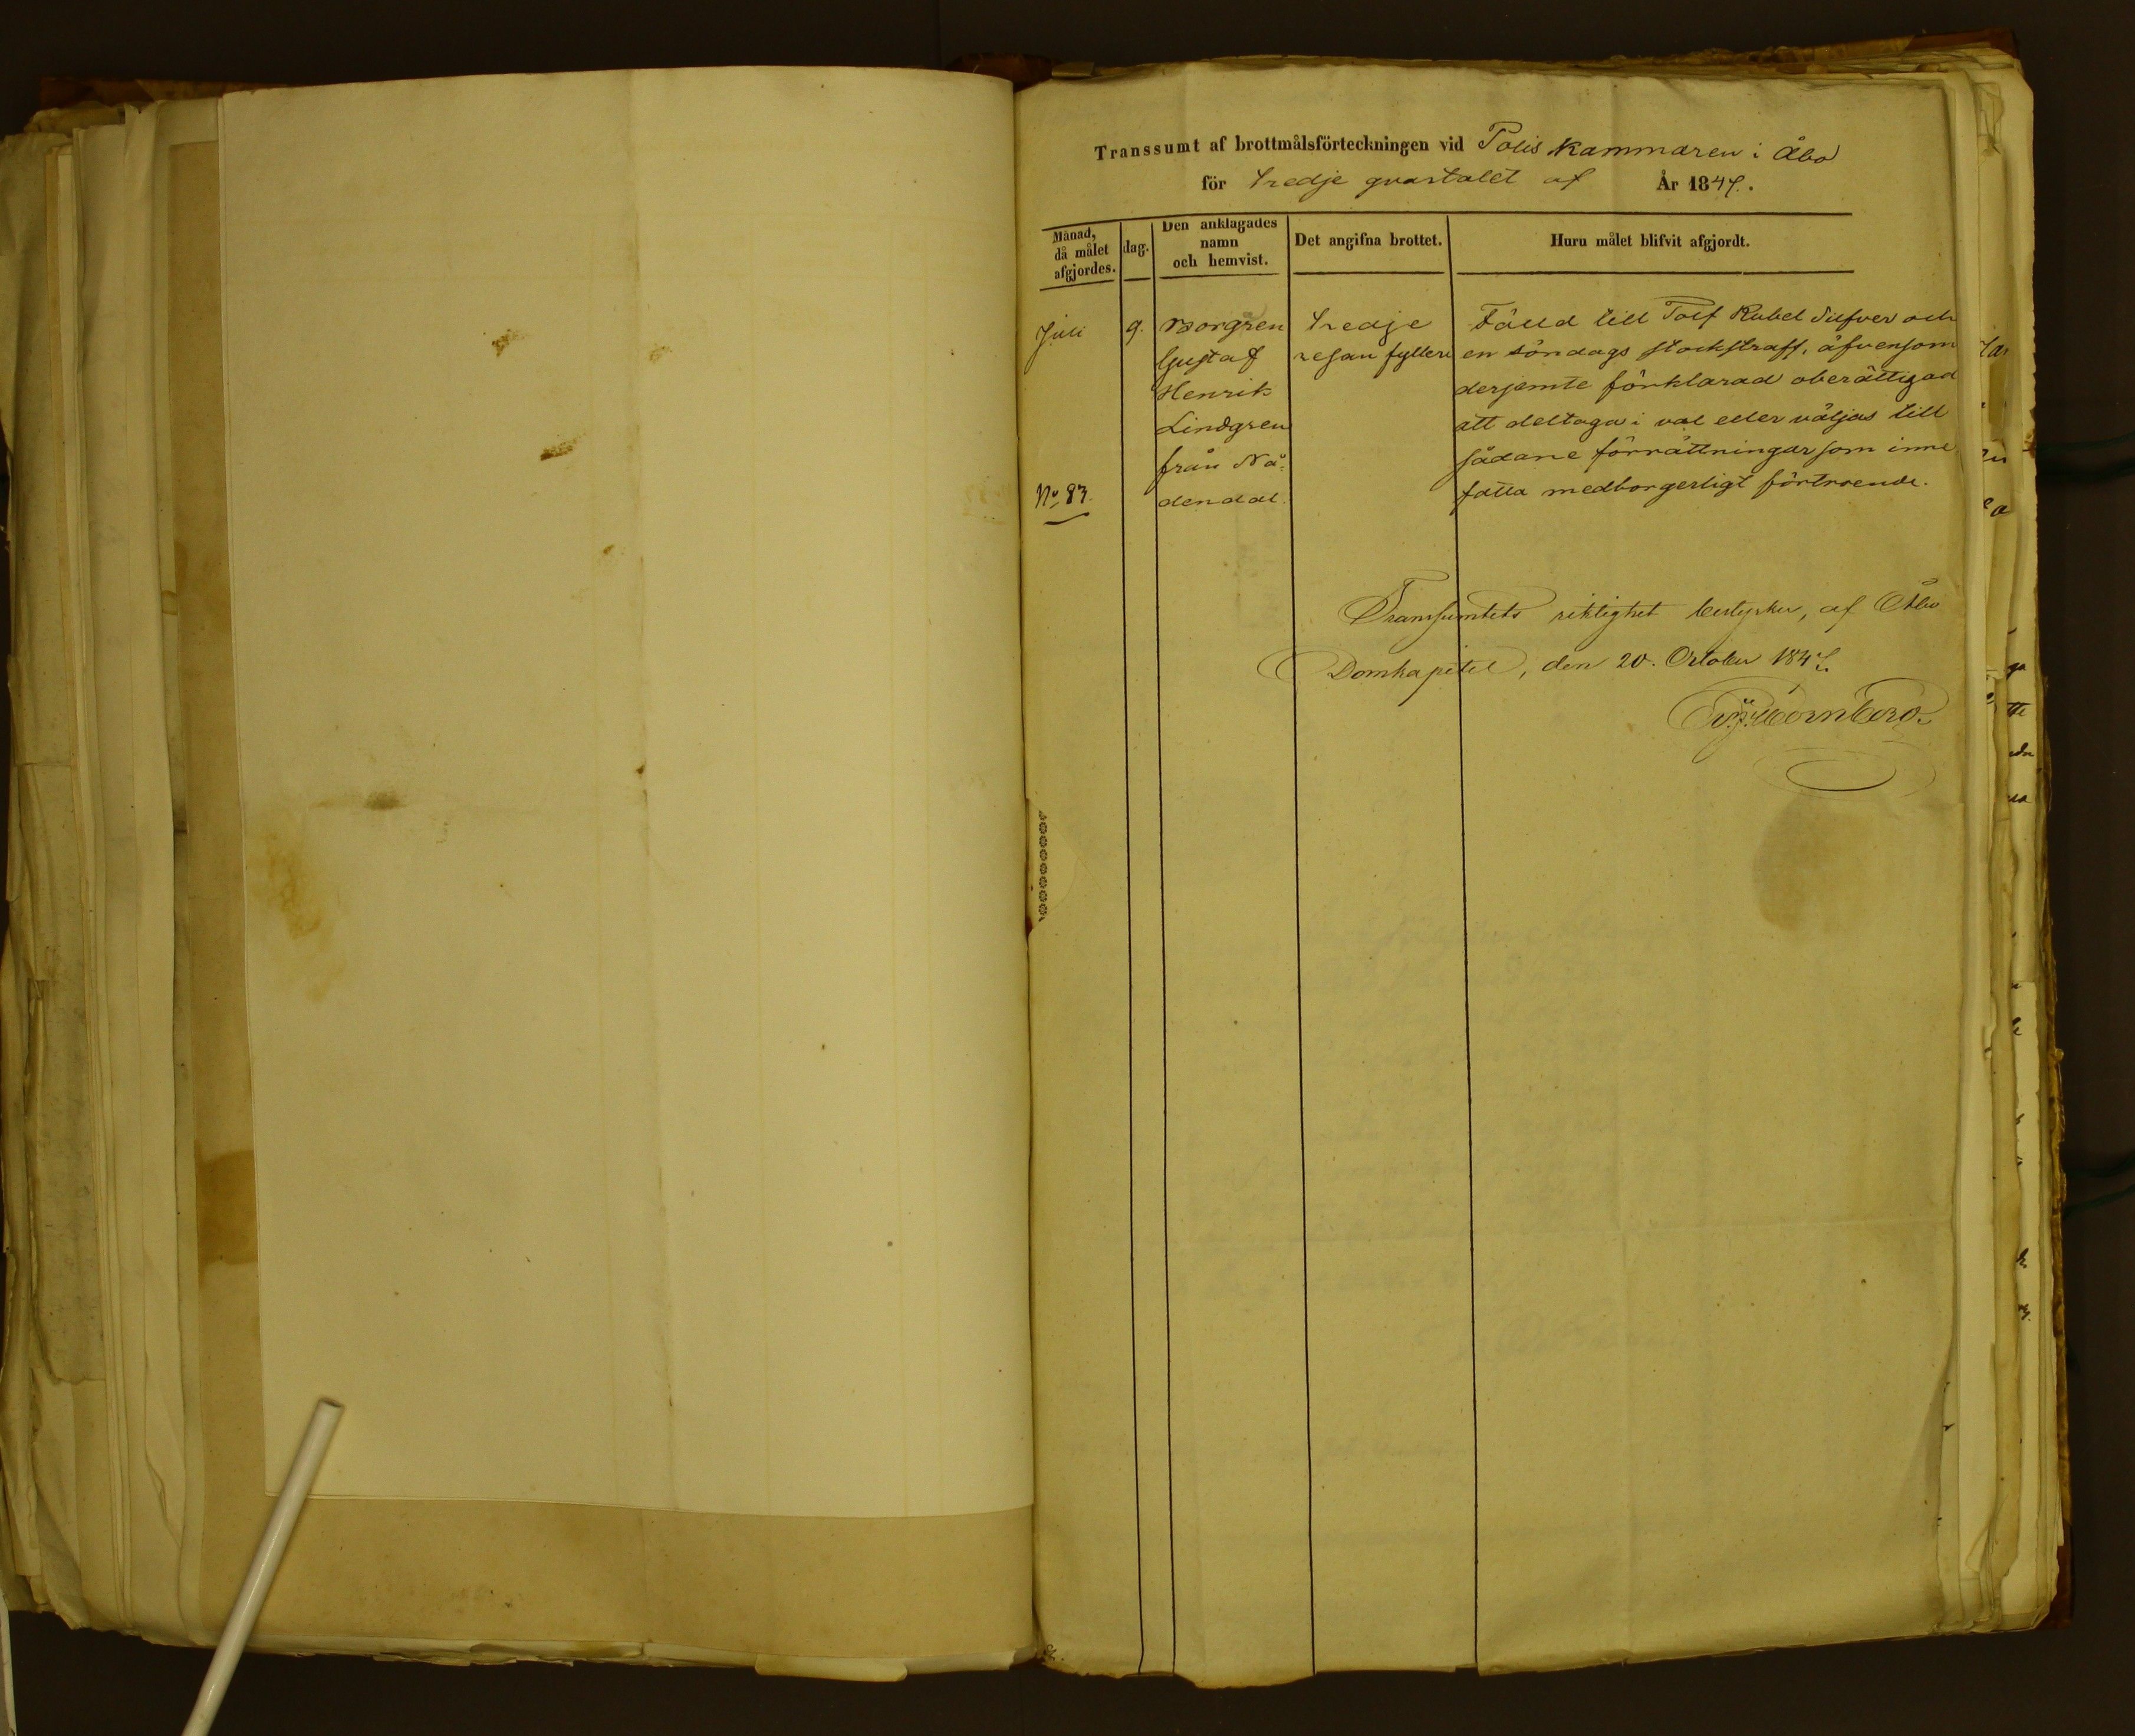 Transsumt af brottmålsförteckningen vid Polis kammaren i Åbo
för tredje qvartalet af År 1847.
Månad, då målet afgjordes.
dag.
Den anklagades namn och hemvist.
Det angifna brottet.
Huru målet blifvit afgjordt.
Juli 9. Borgaren tredje Fälld till Tolf Rubel Silfver och
Gustaf resan fylleri en söndags stockstraff, äfvensom
Henrik derjemte förklarad oberättigad
Lindgren att deltaga i val eller väljas till
från Nå- sådane förrättningar som inne
No 83. dendal. fatta medborgerligt förtroende.
Transsumtets riktighet bestyrker, af Åbo
Domkapitel, den 20. October 1847.